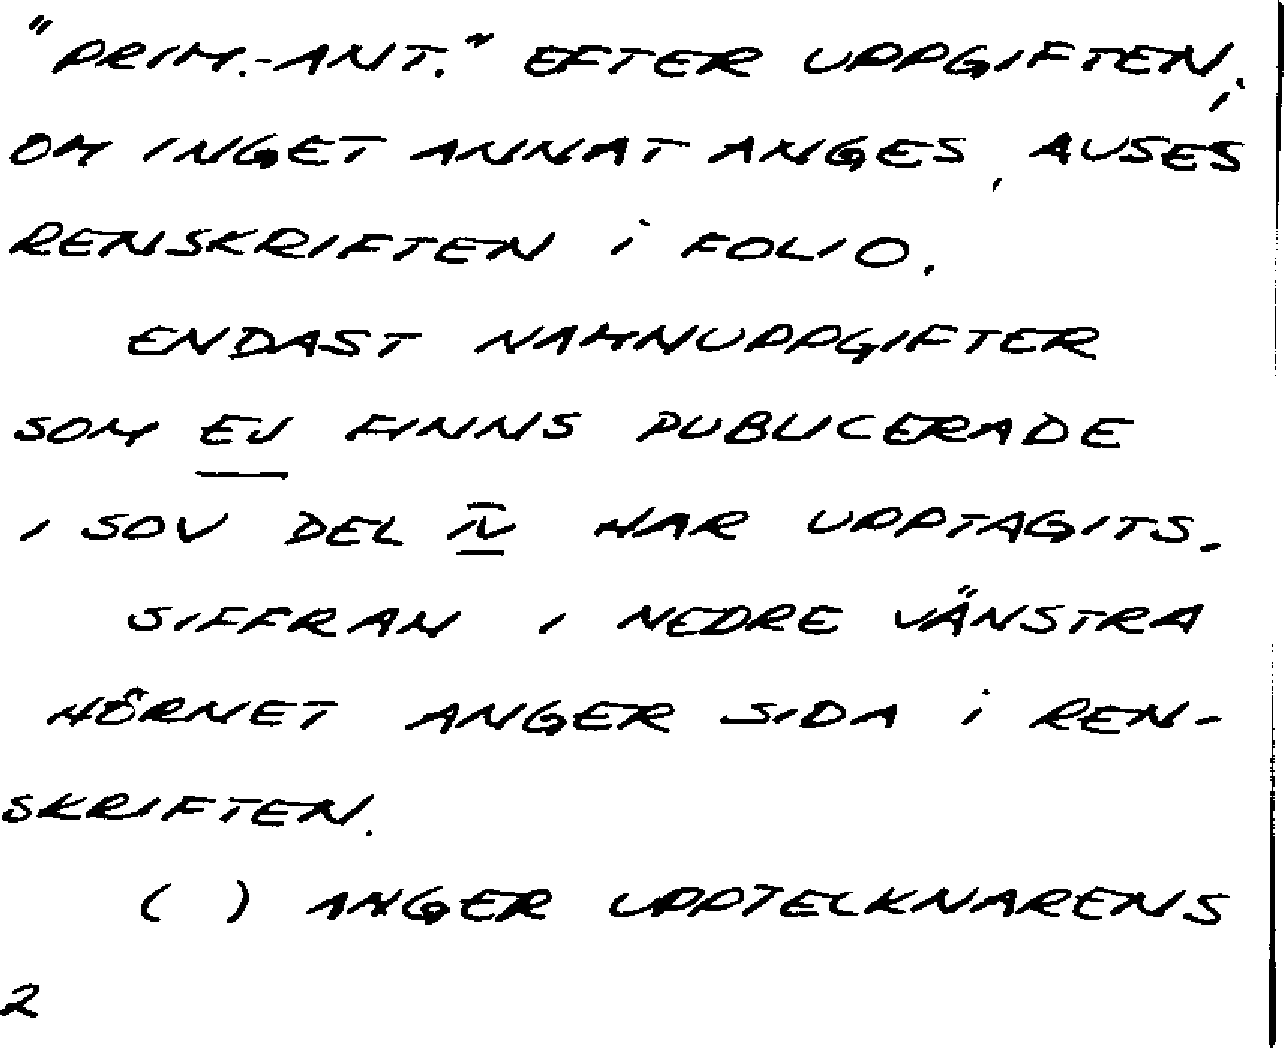 "PRIM.-ANT." EFTER UPPGIFTEN.
OM INGET ANNAT ANGES, AVSES
RENSKRIFTEN i FOLIO.
ENDAST NAMNUPPGIFTER
SOM EJ FINNS PUBLICERADE
I SOV DEL IV HAR UPPTAGITS.
SIFFRAN I NEDRE VÄNSTRA
HÖRNET ANGER SIDA i REN-
SKRIFTEN.
( ) ANGER UPPTECKNARENS
2